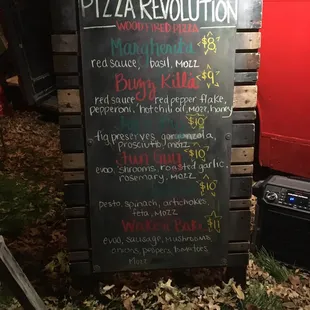 PIZZA REVOLUTION
WOOD FIRED PIZZA
Margherita $8
red sauce, basil, mozz
Buzz Killa $9
red sauce, red pepper flake,
pepperoni, hot chili oil, mozz, honey
$10
fig preserves, gorgonzola,
prosciutto, mozz
Fun Guy $10
evoo, shrooms, roasted garlic,
rosemary, mozz
$10
pesto, spinach, artichokes,
feta, mozz
$11
evoo, sausage, mushrooms,
onions, peppers, tomatoes